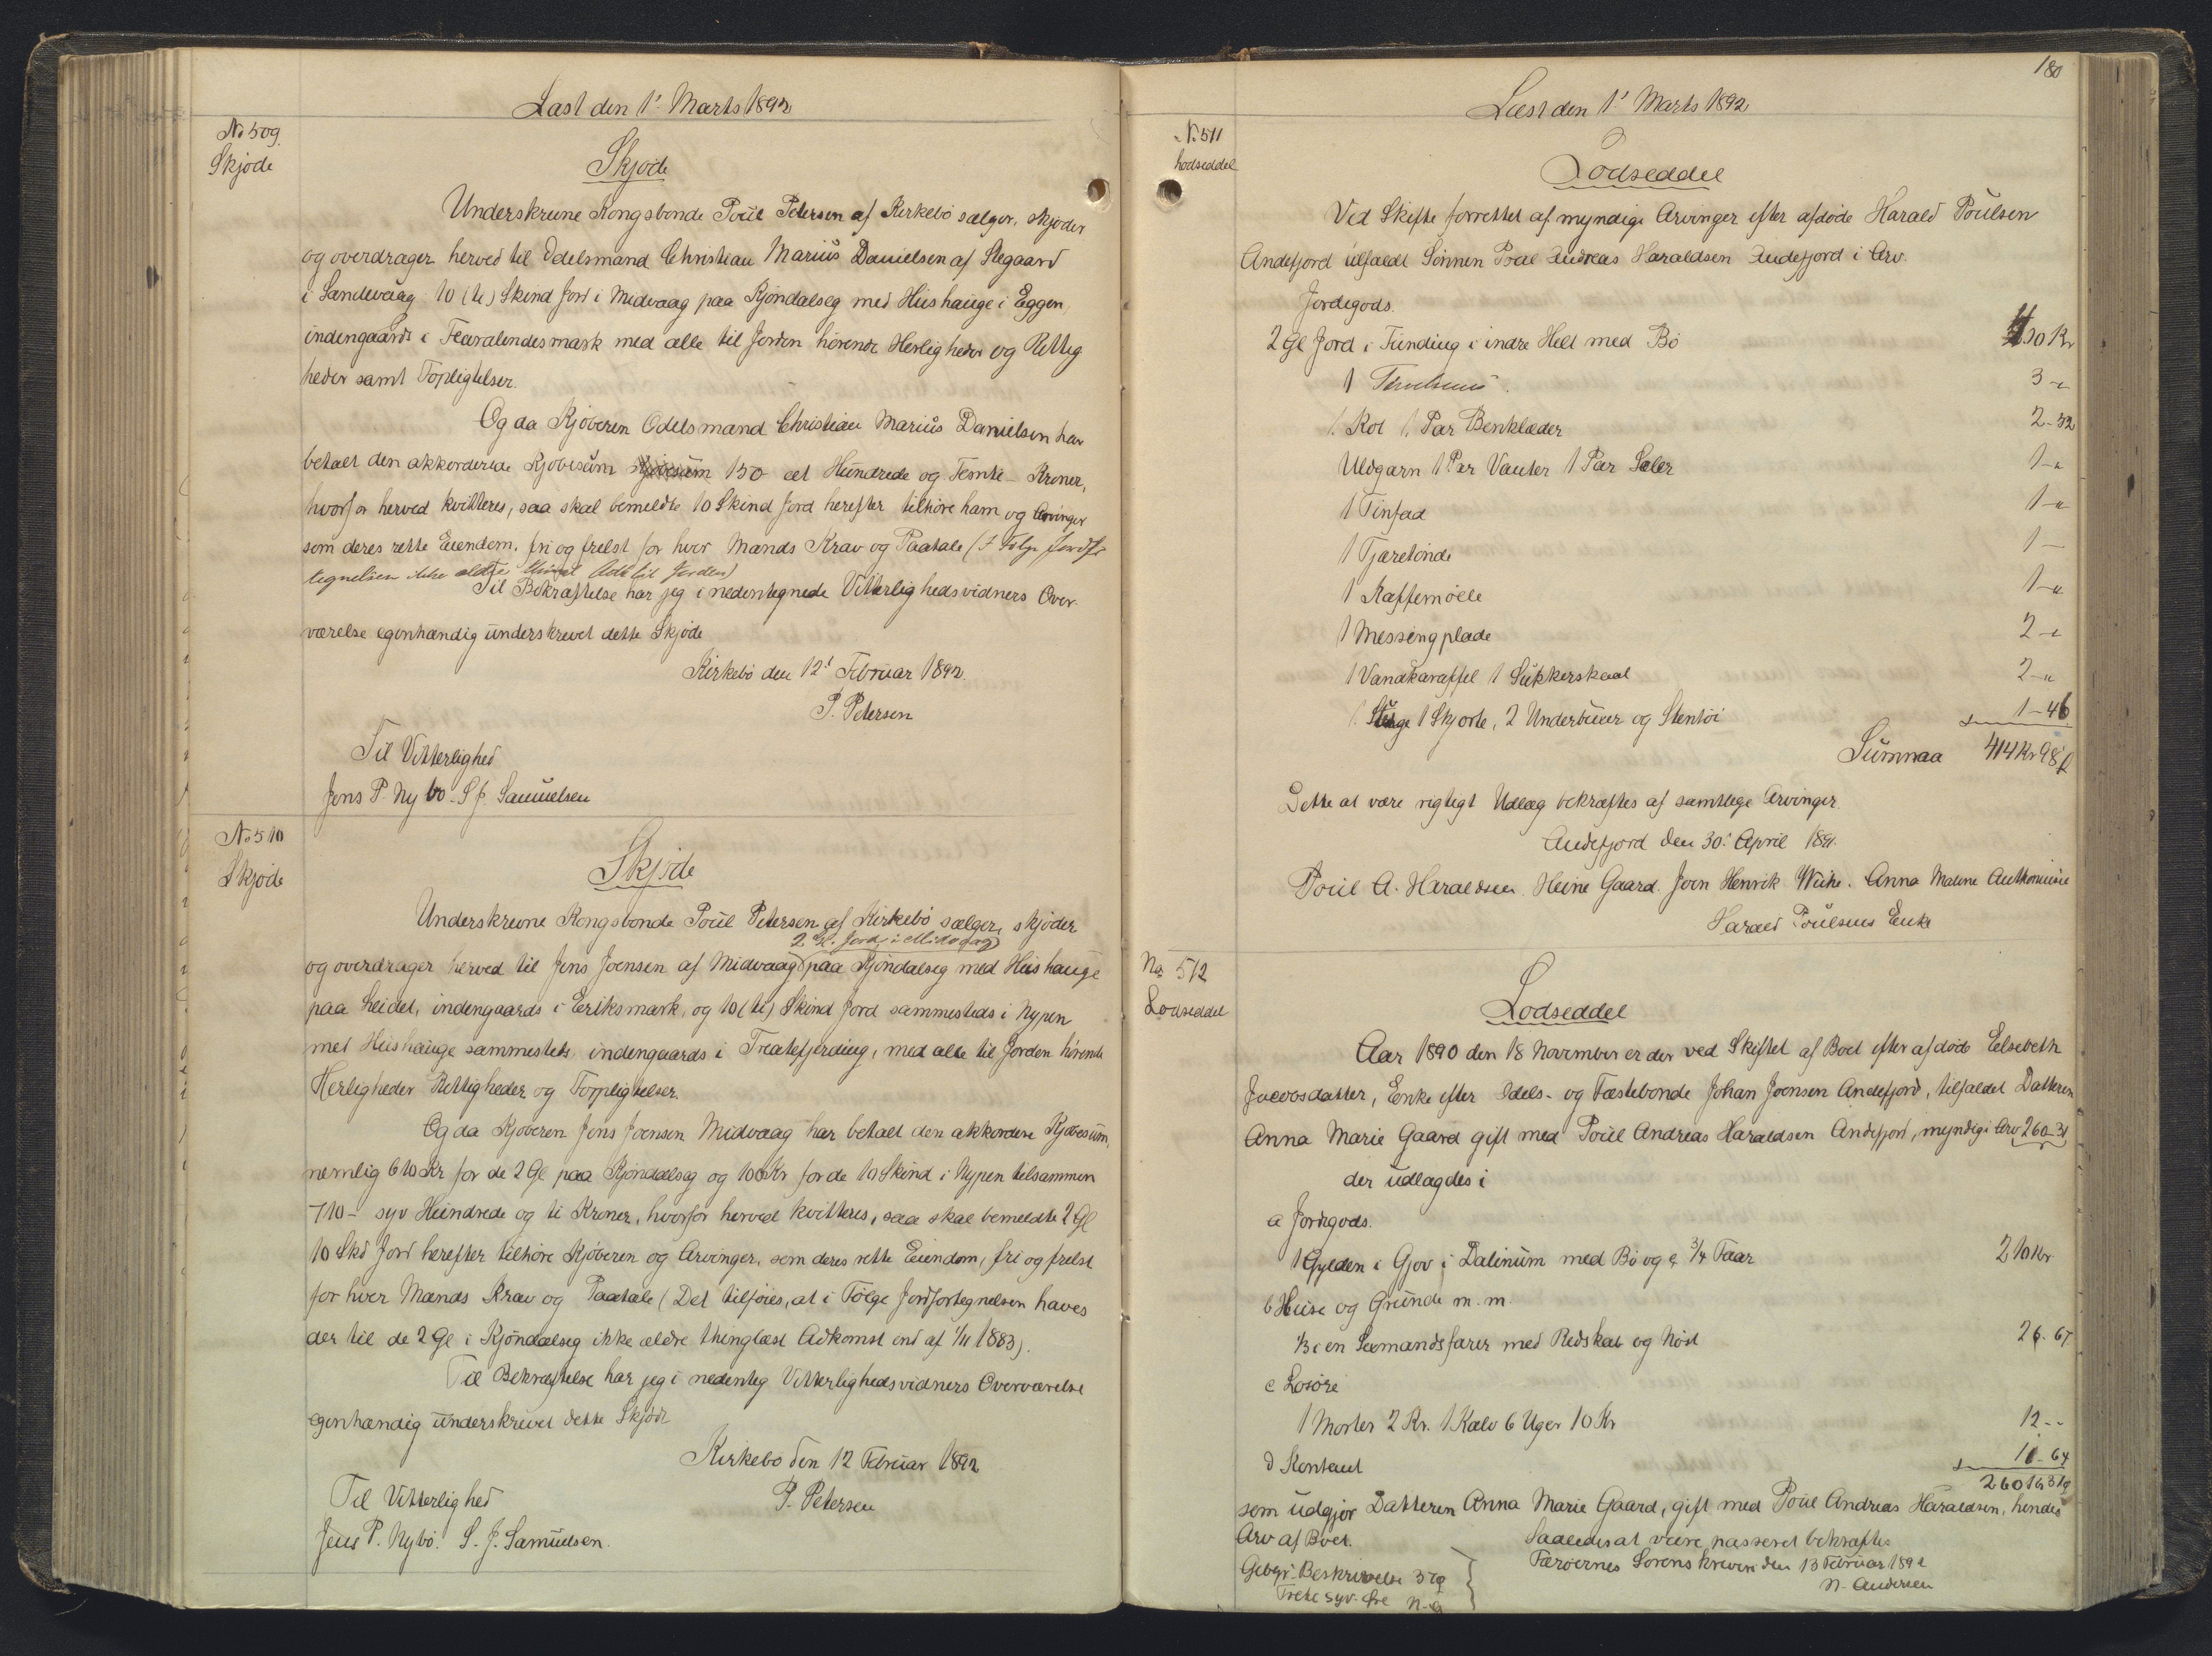 Læst den 1' Marts 1892
No 509.
Skjøde
Skjøde
Underskrevne Kongsbonde Poul Petersen af Kirkebø sælger, skjøder
og overdrager herved til Odelsmand Christian Marius Danielsen af Stegaard
i Sandevaag 10 (ti) Skind Jord i Midvaag paa Kjøndalseg med Hushauge i Eggen,
indengaards i mark med alle til Jorden hørende Herligheder og Rettig
heder samt Forpligtelser.
Og da Kjøberen Odelsmand Christian Marius Danielsen har
betalt den akkorderede Kjøbesum 150 et Hundrede og Femti - Kroner,
hvorfor herved kvitteres, saa skal bemeldte 10 Skind Jord herefter tilhøre ham og Arvinger
som deres rette Eiendom, fri og frelst for hver Mands Krav og Paatale (I Følge Jordfor
tegnelsen ikke ældre Adk til Jorden)
Til Bekræftelse har jeg i nedentegnede Vitterlighedsvidners Over-
værelse egenhændig underskrevet dette Skjøde
Kirkebø den 12' Februar 1892.
P. Petersen
Til Vitterlighed
Jens P. Nybo. S J. Samuelsen
No 510
Skjøde
Skjøde
Underskrevne Kongsbonde Poul Petersen af Kirkebø sælger, skjøder
2 Gl. Jord i Midvaag
og overdrager herved til Jens Joensen af Midvaag paa Kjøndalseg med Hushauge
paa Heidet, indengaards i Eriksmark, og 10 (ti) Skind Jord sammesteds i Nypen
med Hushauge sammesteds indengaards i Treatefjerding, med alle til Jorden hørende
Herligheder Rettigheder og Forpligtelser.
Og da Kjøberen Jens Joensen Midvaag har betalt den akkordere Kjøbesum,
nemlig 610 Kr for de 2 Gl paa Kjøndalseg og 100 Kr for de 10 Skind i Nypen tilsammen
710 - syv Hundrede og ti Kroner, hvorfor herved kvitteres, saa skal bemeldte 2 Gl
10 Skd Jord herefter tilhøre Kjøberen og Arvinger, som deres rette Eiendom, fri og frelst
for hver Mands Krav og Paatale (Det tilføies, at i Følge Jordfortegnelsen haves
der til de 2 Gl i Kjøndalseg ikke ældre thinglæst Adkomst end af 1/11 1883).
Til Bekræftelse har jeg i nedenteg Vitterlighedsvidners Overværelse
egenhændig underskrevet dette Skjøde
Kirkebø den 12 Februar 1892
P. Petersen
Til Vitterlighed
Jens P. Nybo. S. J. Samuelsen.
180
Læst den 1' Marts 1892
No 511
Lodseddel
Lodseddel
Ved Skifte forrettet af myndige Arvinger efter afdøde Harald Poulsen
Andefjord tilfaldt Sønnen Poul Andreas Haraldsen Andefjord i Arv.
Jordegods.
2 Gl Jord i Funding i indre Helt med Bø 400 Kr
1 3 - "
1. Kot 1. Par Benklæder 2 - 32
Uldgarn 1 Par Vanter 1 Par Saler 1 - "
1 Tinfad 1 - "
1 Tjæretønde 1 -
1 Kaffemølle 1 - "
1 Messingplade 2 - "
1 Vandkaraffel 1 Sukkerskaal 2 - "
1 Skjorte, 2 Underbuxer og Stentøi 1 - 46
Summa 414 Kr 98
Dette at være rigtigt Udlæg bekræftes af samtlige Arvinger.
Andefjord den 30' April 1891.
Poul A. Haraldsen. Heine Gaard. Joen Henrik Wiihe. Anna Malene
Harald Poulsens Enke
No 512
Lodseddel
Lodseddel
Aar 1890 den 18 November er der ved Skiftet af Boet efter afdøde Elsebeth
Jacobsdatter, Enke efter Odels- og Fæstebonde Johan Joensen Andefjord, tilfaldet Datteren
Anna Marie Gaard gift med Poul Andreas Haraldsen Andefjord, myndig i Arv 260-31
der udlagdes i
a Jordegods.
1 Gylden i Gjov i Dalinum med Bø og 3/4 Faar 210 Kr
b Huse og Grunde m. m.
1/3 i en Sexmandsfarer med Redskab og Nøst 26 - 67
c Løsøre
1 Morter 2 Kr. 1 Kalv 6 Uger 10 Kr 12 - -
d Kontant 11 - 64
260 Kr 31
som udgjør Datteren Anna Marie Gaard, gift med Poul Andreas Haraldsen, hendes
Arv af Boet. Saaledes at være passeret bekræftes
Færøernes Sorenskriveri den 13 Februar 1892
N. Andersen
Gebyr. Beskrivelse 37
Trete syv Øre N. A